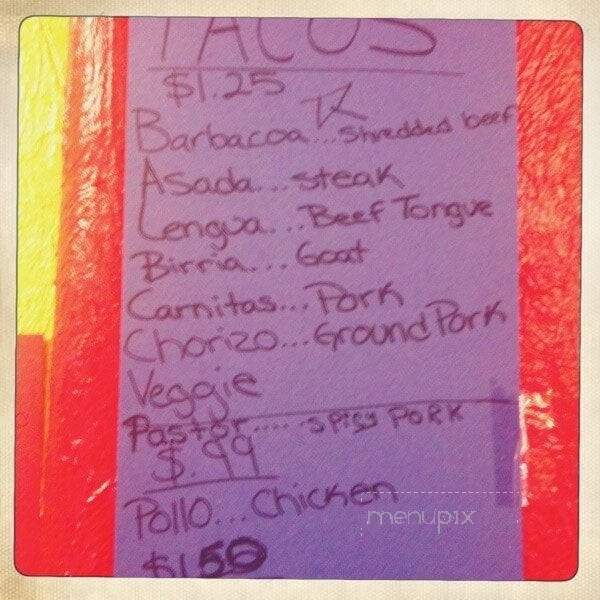 TACOS
$1.25
Barbacoa...shredded beef
Asada...steak
Lengua...Beef Tongue
Birria...Goat
Carnitas...Pork
Chorizo...Ground Pork
Veggie
Pastor.....spicy PORK
$.99
Pollo...Chicken
menupix
$1.50